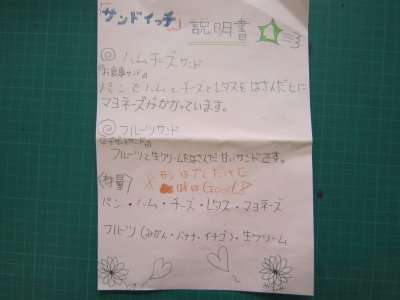 「サンドイッチ」説明書
ハムチーズサンド
お食事サンド
パンでハムとチーズとレタスをはさんだ上に
マヨネーズがかかっています。
フルーツサンド
フルーツと生クリームをはさんだ甘いサンドです。
※形はアレだけど
味はGood!
パン・ハム・チーズ・レタス・マヨネーズ
フルーツ(みかん・バナナ・イチゴ)・生クリーム